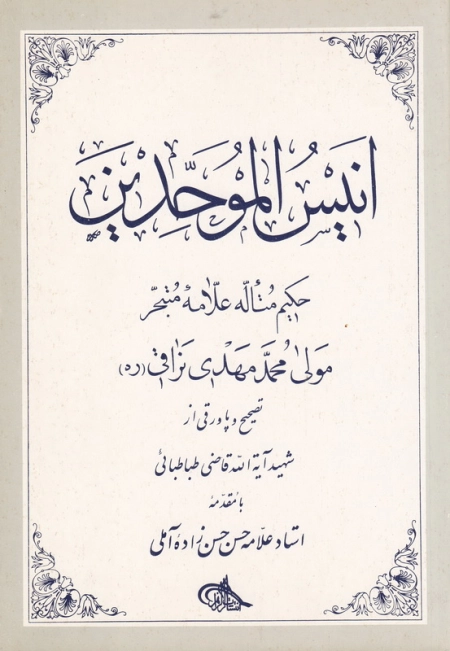 انیسُ المُوَحِّدین
حکیم متألّه علّامهٔ متبحّر
مولیٰ محمّد مهدی نراقی (ره)
تصحیح و پاورقی از
شهید آیة الله قاضی طباطبائی
با مقدّمه
استاد علّامه حسن حسن زاده آملی